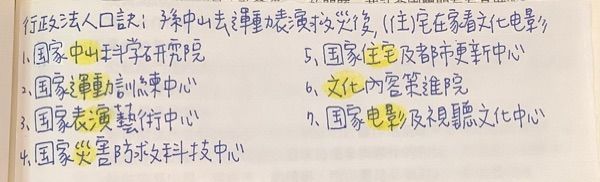 行政法人口訣：孫中山去運動表演救災後，(住)宅在家看文化电影
1、国家中山科学研究院
2、国家運動訓練中心
3、国家表演藝術中心
4、国家災害防救科技中心
5、国家住宅及都市更新中心
6、文化內容策進院
7、国家电影及視聽文化中心